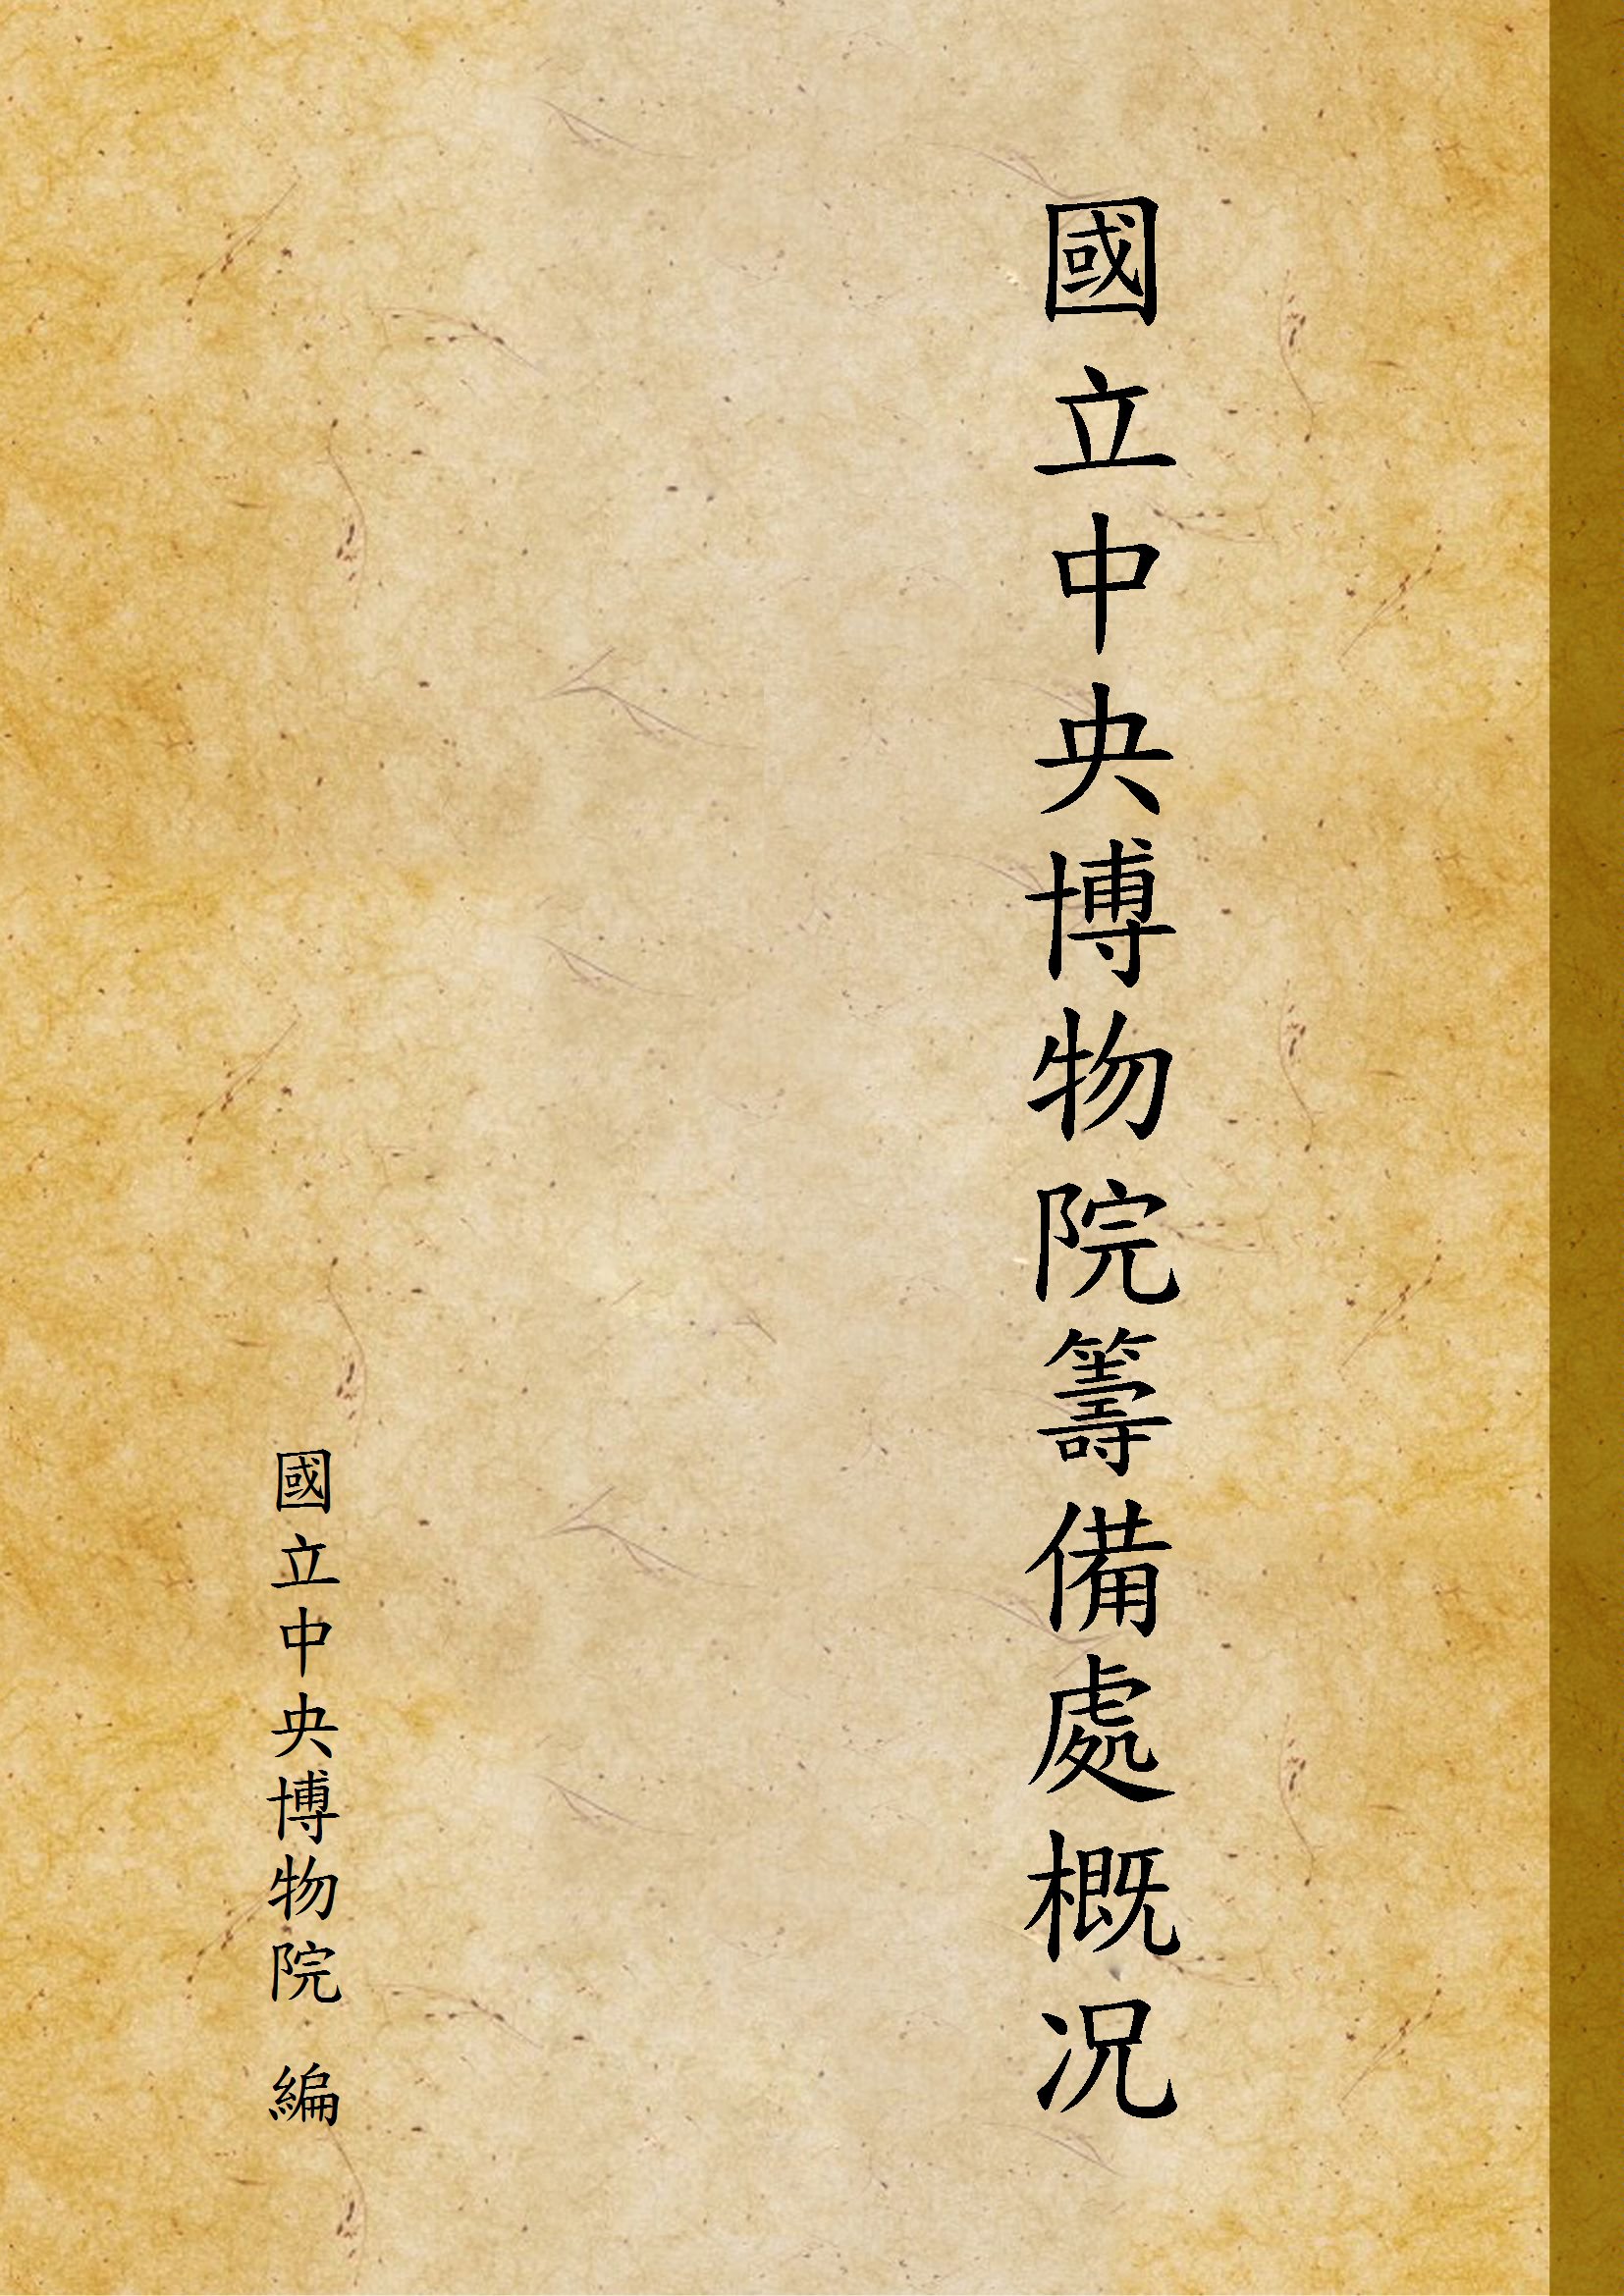 國立中央博物院籌備處概況
國立中央博物院 編